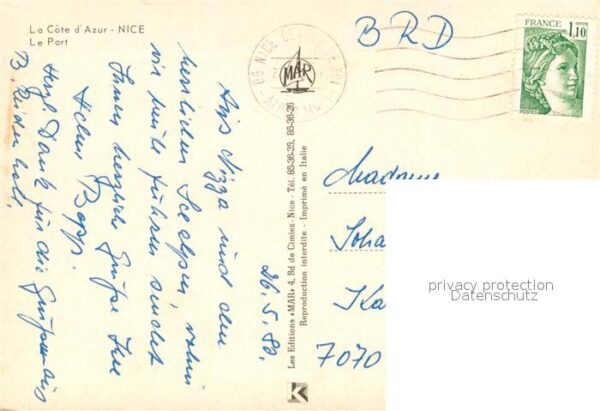 La Côte d'Azur - NICE
Le Port
BRD
FRANCE
1,10
POSTES
06 NICE
MAR
26.5.80.
Aus Nizza und dem
herrlichen Seealpen, wohin
wir heute führen sendet
Ihnen herzliche Grüße Ihre
Helene Bopp.
Herzl. Dank für die Grüße aus
B.
Les Editions «MAR» 4, Bd de Cimiez - Nice - Tél. 85-36-25, 85-36-26
Reproduction interdite - Imprimé en Italie
Madame
Joha
Ka
7070
privacy protection
Datenschutz
K